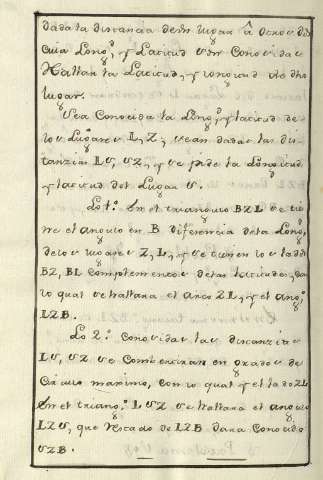 dada la distancia de un lugar â otro cu
cuia Long.ᵈ y Latitud son Conocidas
Hallar la Latitud, y longitud de dho
lugar.
Sea Conocida la Long.ᵈ y latitud de
los Lugares L, Z; y sean dadas las dis-
tanzias LS, SZ, y se pide la Longitud
y latitud del Lugar S.
Lo 1.º En el triangulo BZL se tie-
ne el angulo en B diferencia de la Long.ᵈ
de los lugares Z, L, y se tienen los lados
BZ, BL complementos de las latitudes,
lo qual se hallara el arco ZL, y el ang.º
LZB.
Lo 2.º Conocidas las distanzias
LS, SZ se Combertiran en grados de
Circulo maximo, con lo qual y el lado ZL
En el triang.º LSZ se hallara el angulo
LZS, que restado de LZB dara Conocido
SZB.